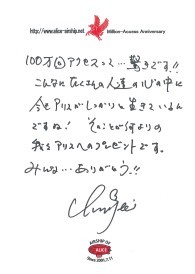 http://www.alice-airship.net
Million-Access Anniversary
100万のアクセスって…驚きです!!
こんなにたくさんの人達の心の中に
今もアリスがしっかりと生きているん
ですね! そのことが何よりの
我らアリスへのプレゼントです。
みんな…ありがとう!!
AIRSHIP OF
ALICE
Since 2001.7.11